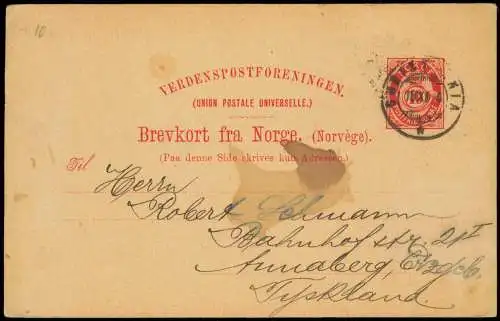 10
VERDENSPOSTFORENINGEN.
(UNION POSTALE UNIVERSELLE.)
Brevkort fra Norge. (Norvège).
(Paa denne Side skrives kun Adressen.)
Til
Herrn
Robert Lehmann
Bahnhofstr. 2 I
Annaberg, Erzgeb.
Tyskland.